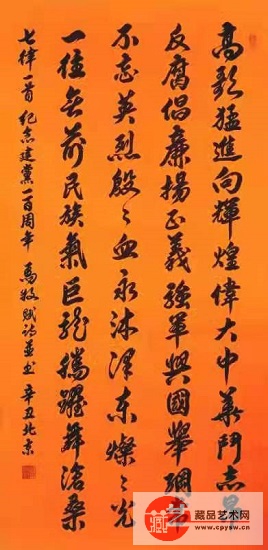 高歌猛進向輝煌偉大中華鬥志昂
反腐倡廉揚正義強軍興國綱常
不忘英烈殷々血永沐澤東燦々光
一往無前民族氣巨龍騰躍舞滄桑
七律一首 纪念建黨一百周年 馬牧賦詩並书 辛丑北京
藏品艺术网
www.cpysw.cn